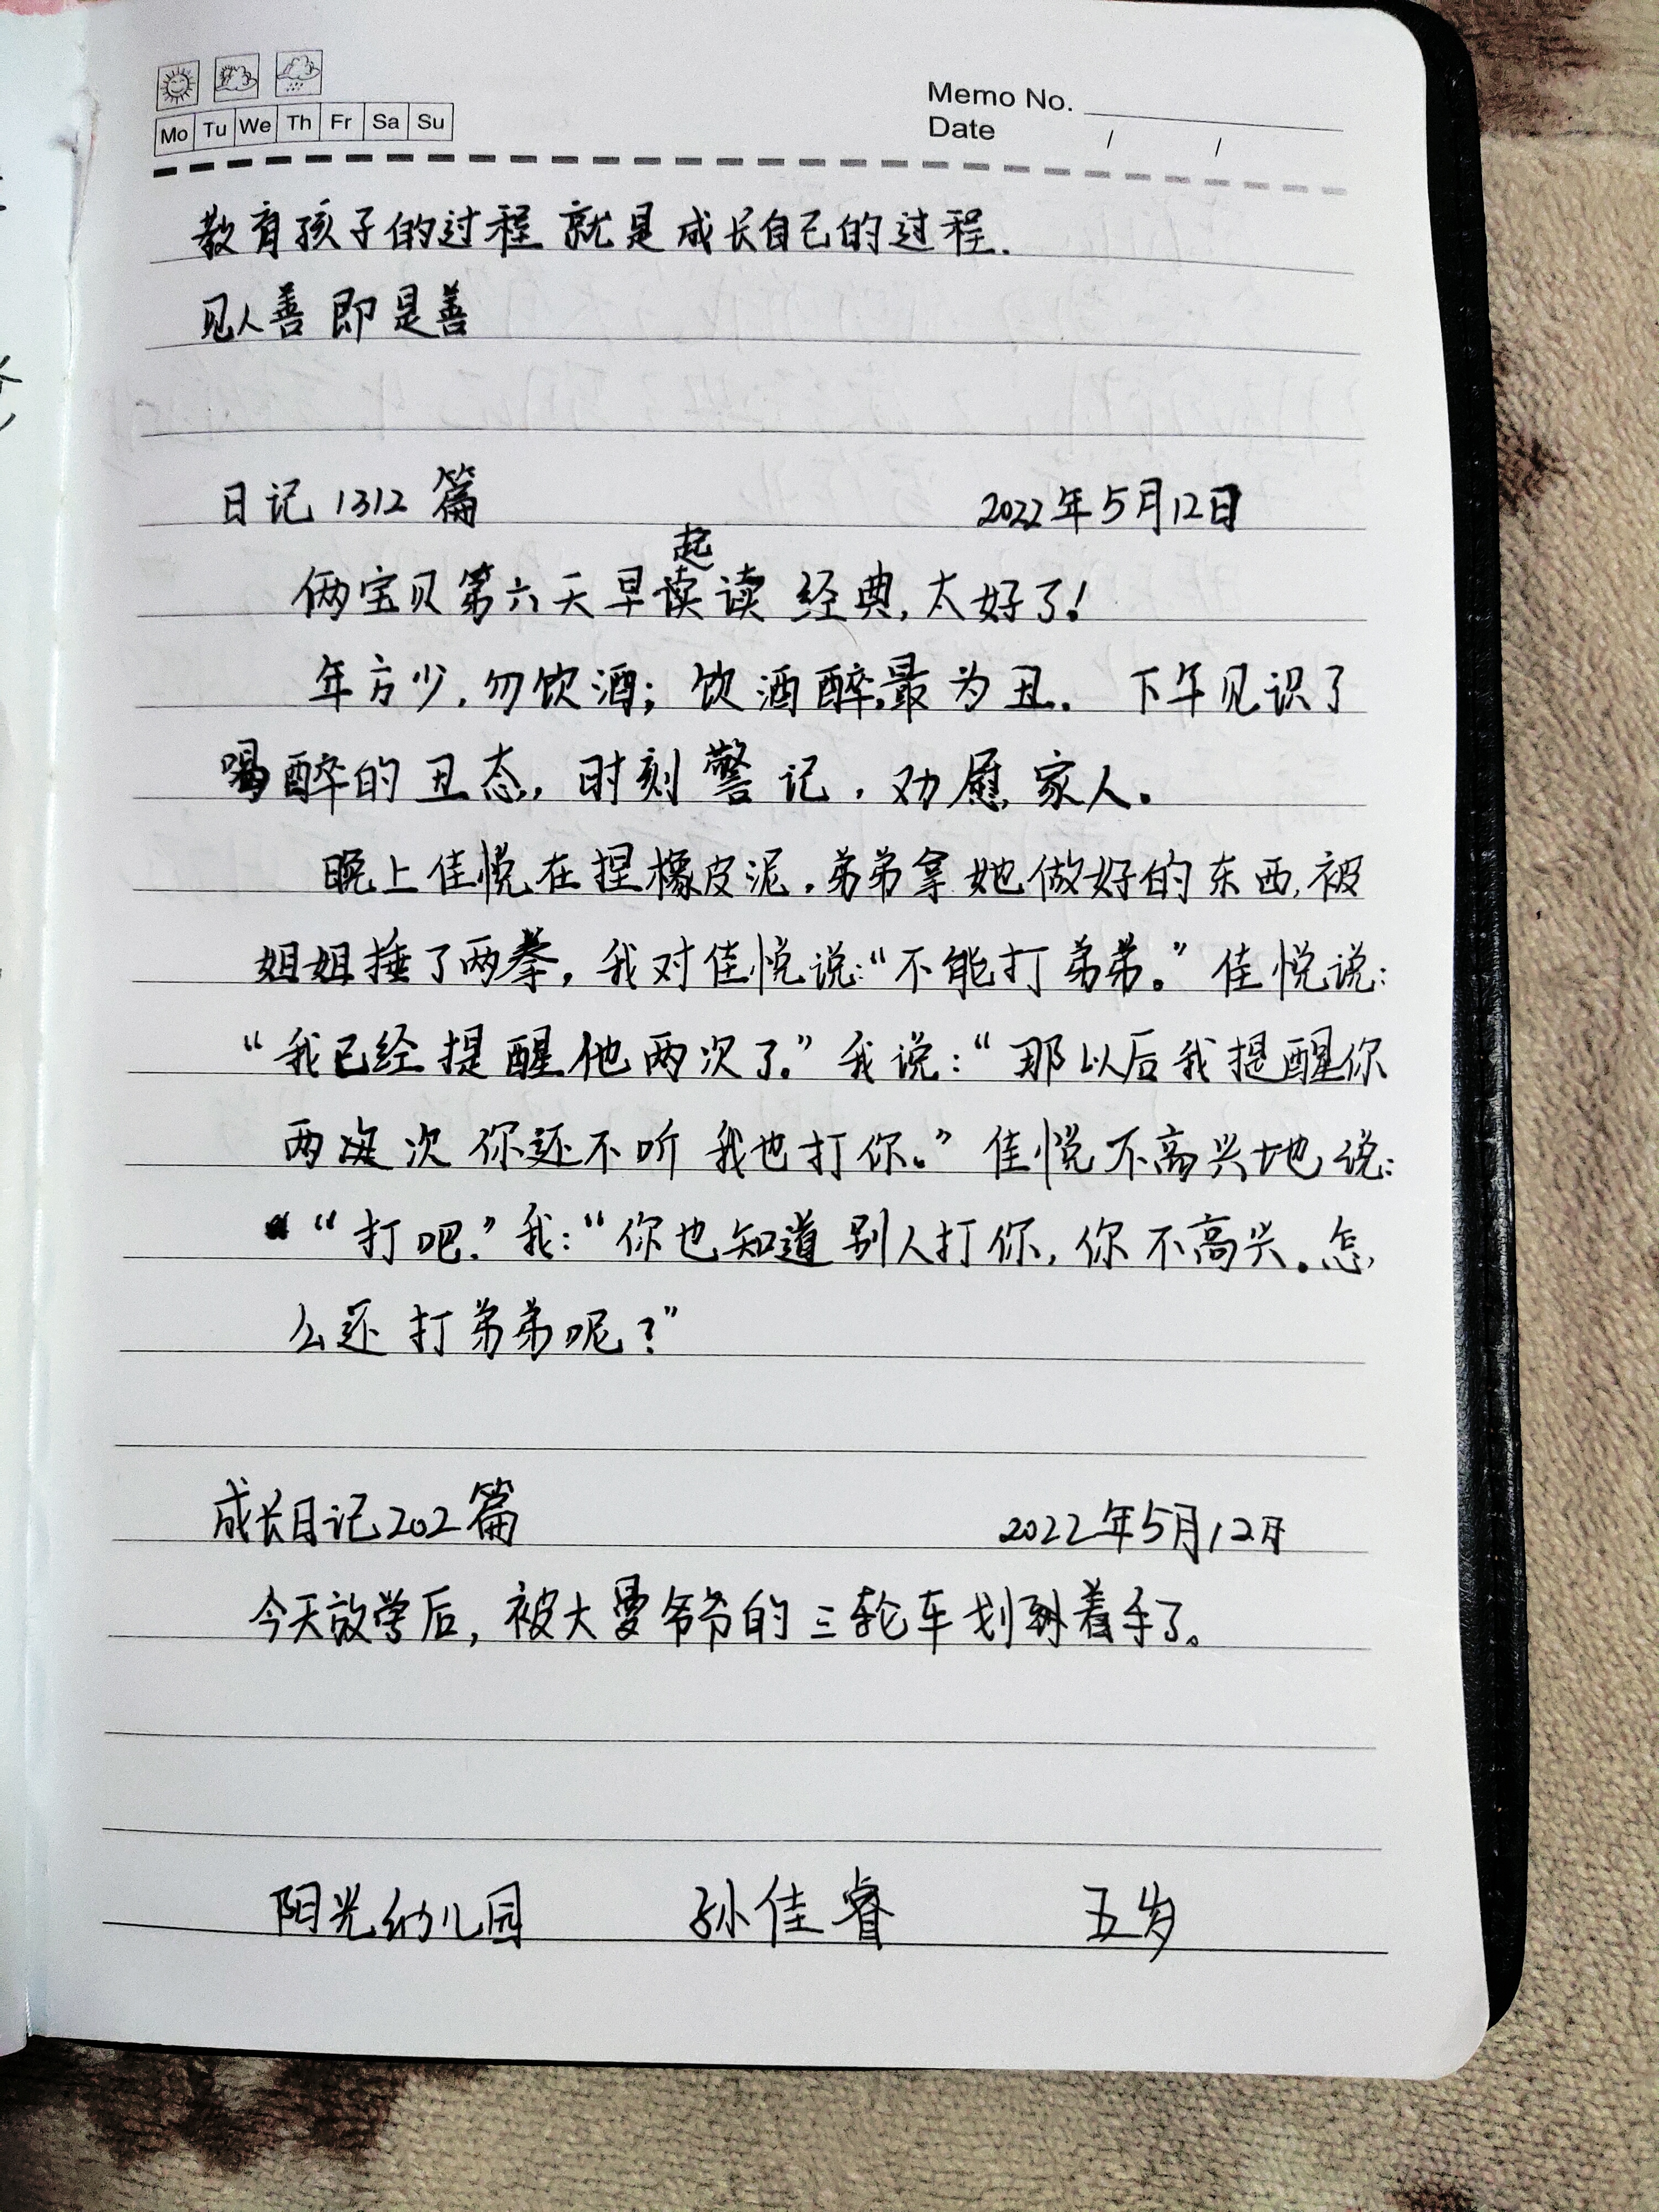 Mo Tu We Th Fr Sa Su
Memo No.
Date / /
教育孩子的过程就是成长自己的过程.
见人善即是善
日记1312篇 2022年5月12日
俩宝贝第六天早起读经典,太好了!
年方少,勿饮酒;饮酒醉,最为丑。下午见识了
喝醉的丑态,时刻警记,劝慰家人。
晚上佳悦在捏橡皮泥,弟弟拿她做好的东西,被
姐姐捶了两拳,我对佳悦说:“不能打弟弟。”佳悦说:
“我已经提醒他两次了。”我说:“那以后我提醒你
两次你还不听我也打你。”佳悦不高兴地说:
“打吧。”我:“你也知道别人打你,你不高兴。怎
么还打弟弟呢?”
成长日记202篇 2022年5月12日
今天放学后,被大曼爷爷的三轮车划着手了。
阳光幼儿园 孙佳睿 五岁